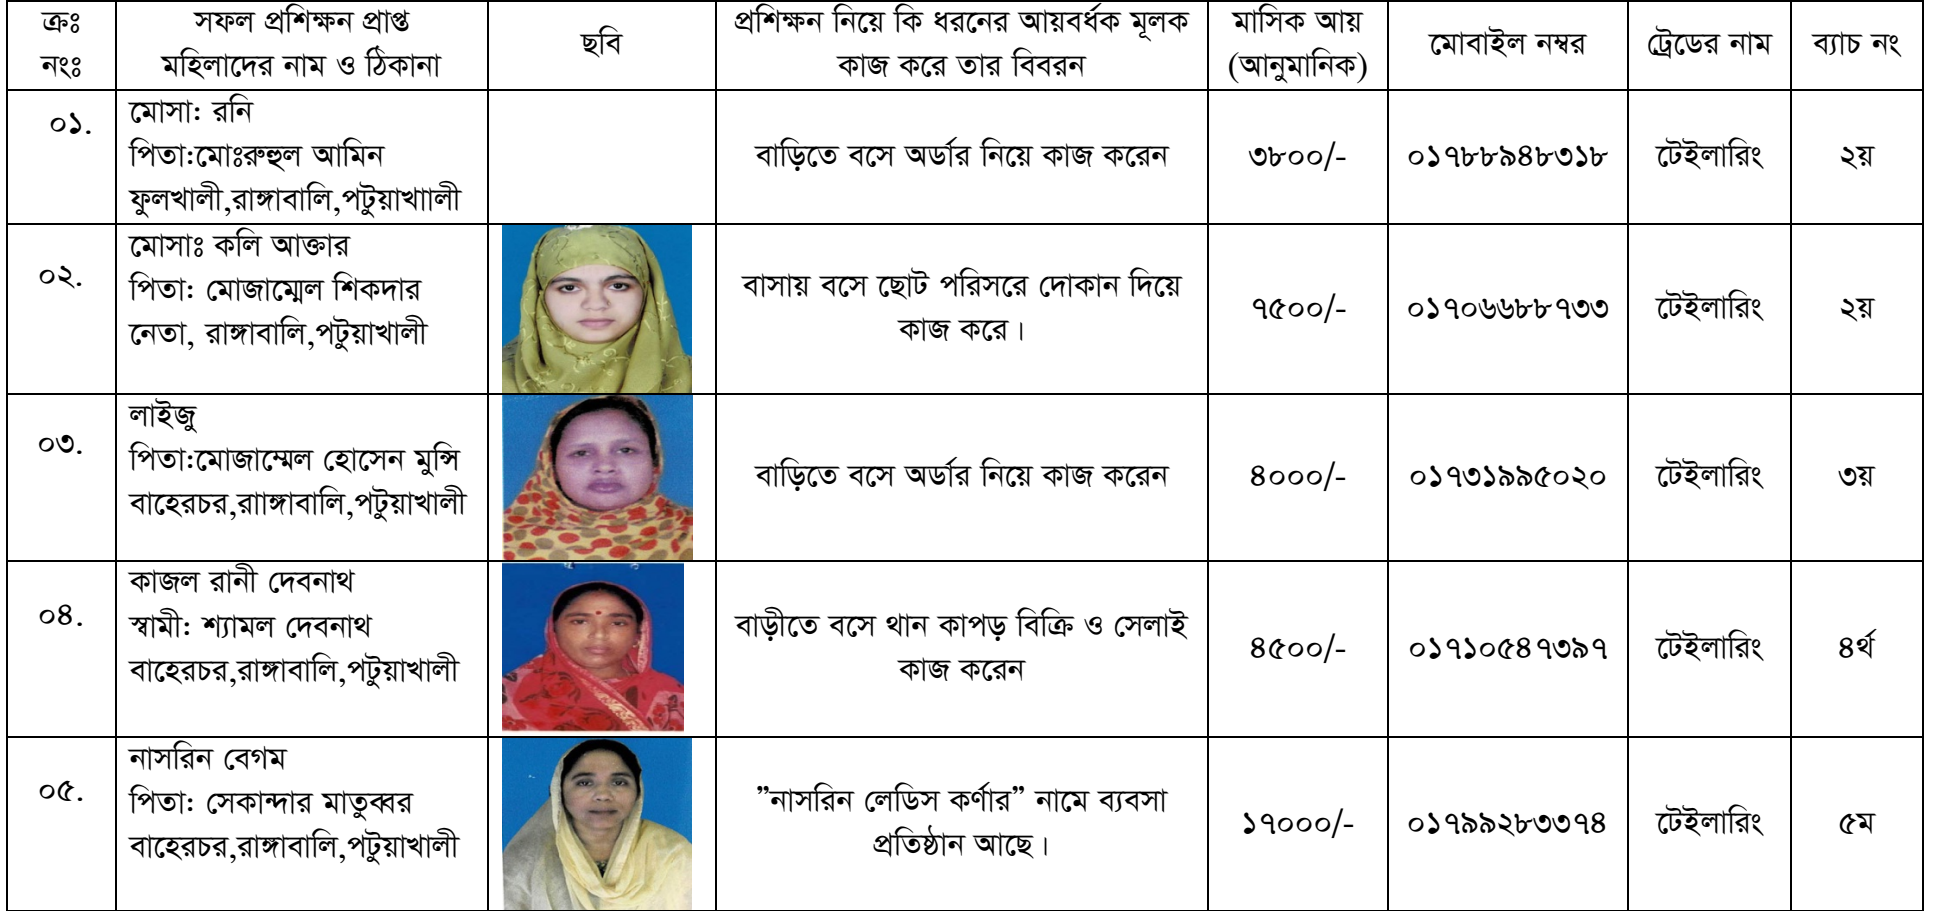 ক্রঃ নংঃ
সফল প্রশিক্ষন প্রাপ্ত মহিলাদের নাম ও ঠিকানা
ছবি
প্রশিক্ষন নিয়ে কি ধরনের আয়বর্ধক মূলক কাজ করে তার বিবরন
মাসিক আয় (আনুমানিক)
মোবাইল নম্বর
ট্রেডের নাম
ব্যাচ নং
০১.
মোসা: রনি
পিতা:মোঃরুহুল আমিন
ফুলখালী,রাঙ্গাবালি,পটুয়াখাালী
বাড়িতে বসে অর্ডার নিয়ে কাজ করেন
৩৮০০/-
০১৭৮৮৯৪৮৩১৮
টেইলারিং
২য়
০২.
মোসাঃ কলি আক্তার
পিতা: মোজাম্মেল শিকদার
নেতা, রাঙ্গাবালি,পটুয়াখালী
বাসায় বসে ছোট পরিসরে দোকান দিয়ে
কাজ করে।
৭৫০০/-
০১৭০৬৬৮৮৭৩৩
টেইলারিং
২য়
০৩.
লাইজু
পিতা:মোজাম্মেল হোসেন মুন্সি
বাহেরচর,রাাঙ্গাবালি,পটুয়াখালী
বাড়িতে বসে অর্ডার নিয়ে কাজ করেন
৪০০০/-
০১৭৩১৯৯৫০২০
টেইলারিং
৩য়
০৪.
কাজল রানী দেবনাথ
স্বামী: শ্যামল দেবনাথ
বাহেরচর,রাঙ্গাবালি,পটুয়াখালী
বাড়ীতে বসে থান কাপড় বিক্রি ও সেলাই
কাজ করেন
৪৫০০/-
০১৭১০৫৪৭৩৯৭
টেইলারিং
৪র্থ
০৫.
নাসরিন বেগম
পিতা: সেকান্দার মাতুব্বর
বাহেরচর,রাঙ্গাবালি,পটুয়াখালী
”নাসরিন লেডিস কর্ণার” নামে ব্যবসা
প্রতিষ্ঠান আছে।
১৭০০০/-
০১৭৯৯২৮৩৩৭৪
টেইলারিং
৫ম